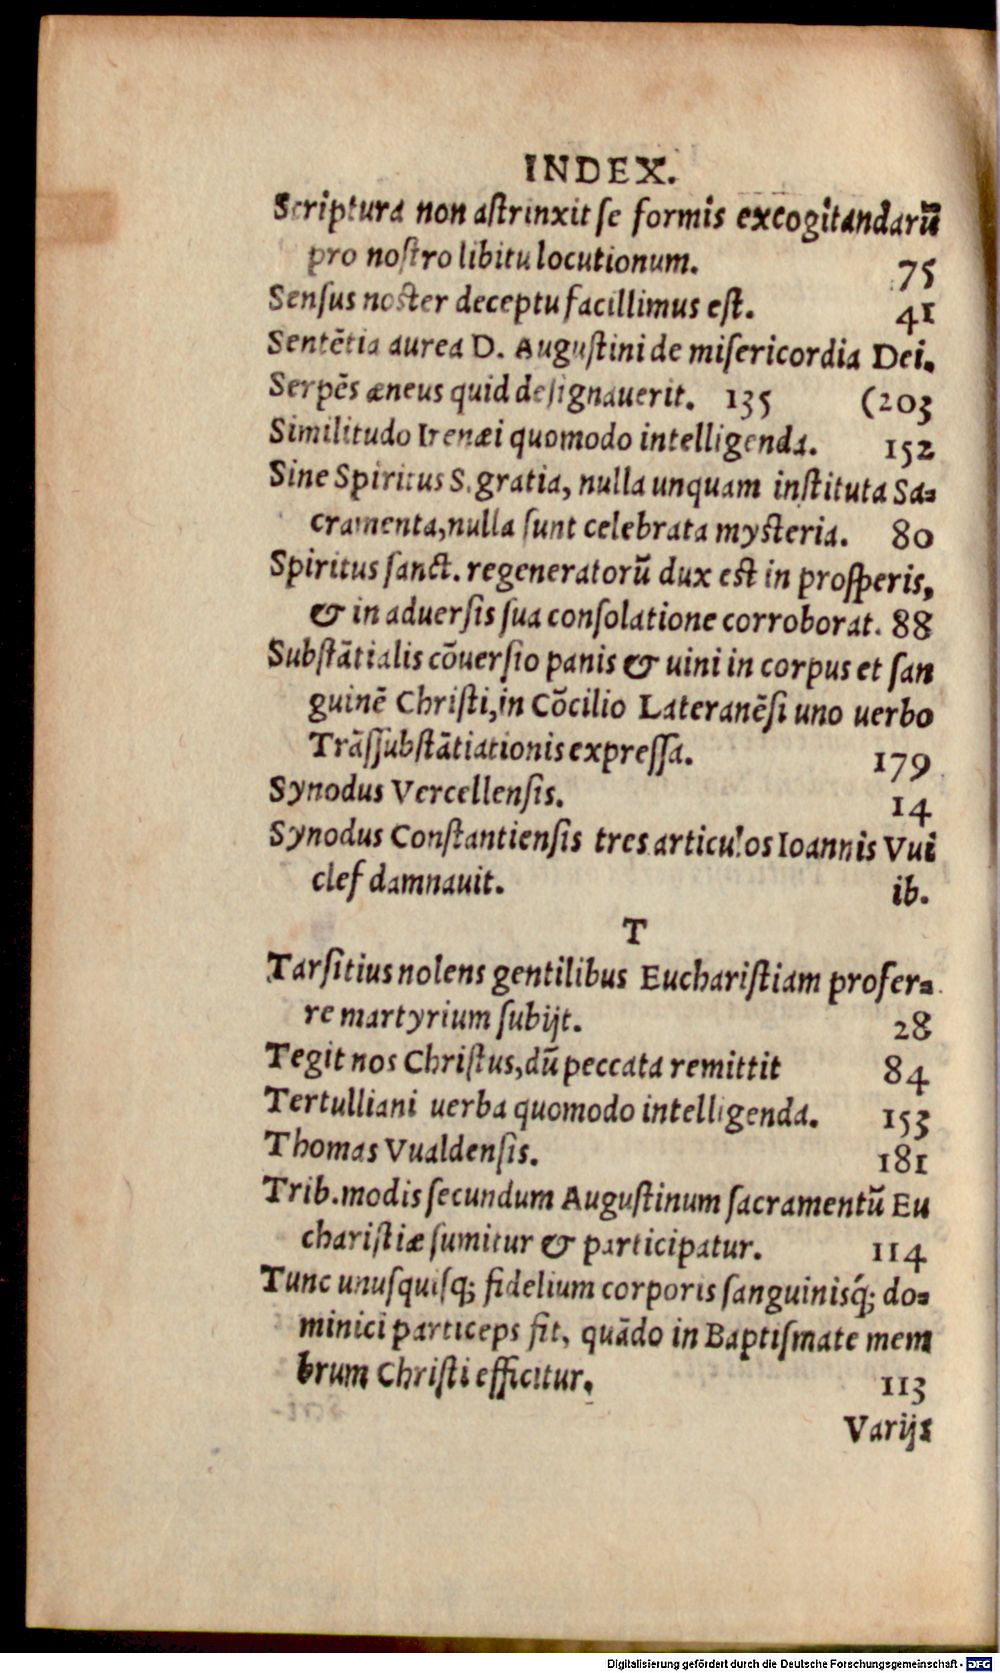 INDEX.
Scriptura non astrinxit se formis excogitandarū
pro nostro libitu locutionum. 75
Sensus noster deceptu facillimus est. 41
Sentētia aurea D. Augustini de misericordia Dei.
Serpēs æneus quid designauerit. 135 (203
Similitudo Irenæi quomodo intelligenda. 152
Sine Spiritus S. gratia, nulla unquam instituta Sa-
cramenta, nulla sunt celebrata mysteria. 80
Spiritus sanct. regeneratorū dux est in prosperis,
& in aduersis sua consolatione corroborat. 88
Substātialis cōuersio panis & uini in corpus et san
guinē Christi, in Cōcilio Lateranēsi uno uerbo
Trāssubstātiationis expressa. 179
Synodus Vercellensis. 14
Synodus Constantiensis tres articulos Ioannis Vui
clef damnauit. ib.
T
Tarsitius nolens gentilibus Eucharistiam profer-
re martyrium subijt. 28
Tegit nos Christus, dū peccata remittit 84
Tertulliani uerba quomodo intelligenda. 153
Thomas Vualdensis. 181
Trib. modis secundum Augustinum sacramentū Eu
charistiæ sumitur & participatur. 114
Tunc unusquisq; fidelium corporis sanguinisq́; do-
minici particeps fit, quādo in Baptismate mem
brum Christi efficitur. 113
Varijs
Digitalisierung gefördert durch die Deutsche Forschungsgemeinschaft - DFG